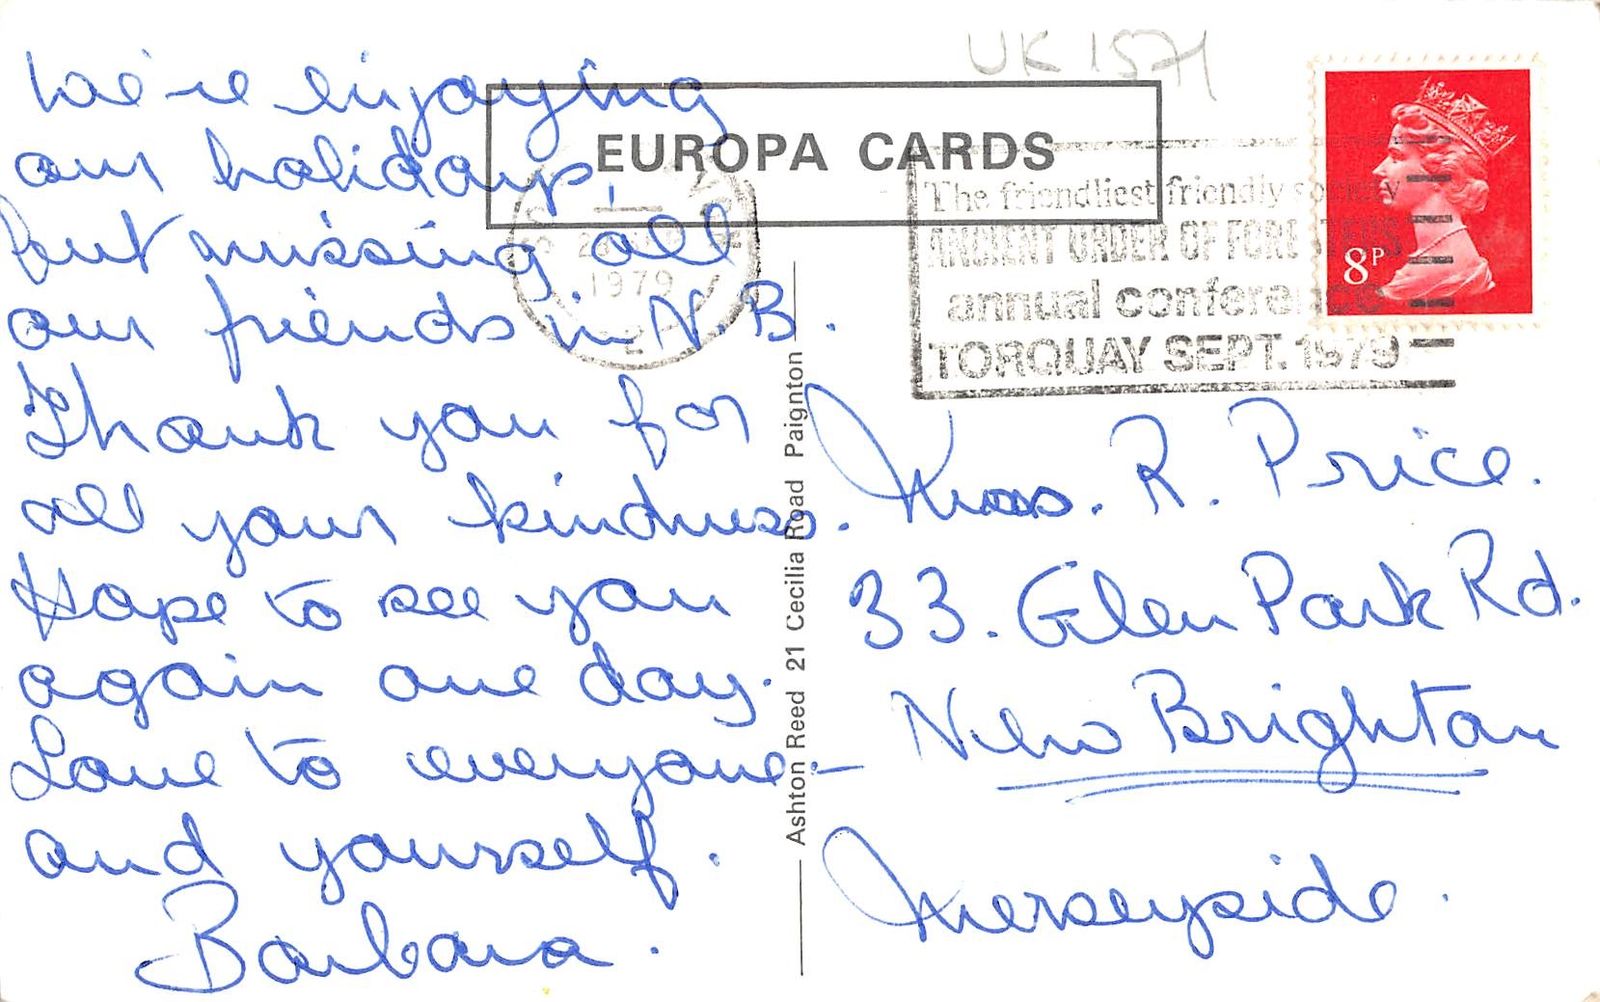 UK 1571
EUROPA CARDS
The friendliest friendly society
ANCIENT ORDER OF FORESTERS
annual conference
TORQUAY SEPT. 1979
1979
8P
We're enjoying
our holidays,
but missing all
our friends in N.B.
Thank you for
all your kindness.
Hope to see you
again one day.
Love to everyone –
and yourself.
Barbara.
Ashton Reed 21 Cecilia Road Paignton
Mrs. R. Price.
33. Glen Park Rd.
New Brighton
Merseyside.